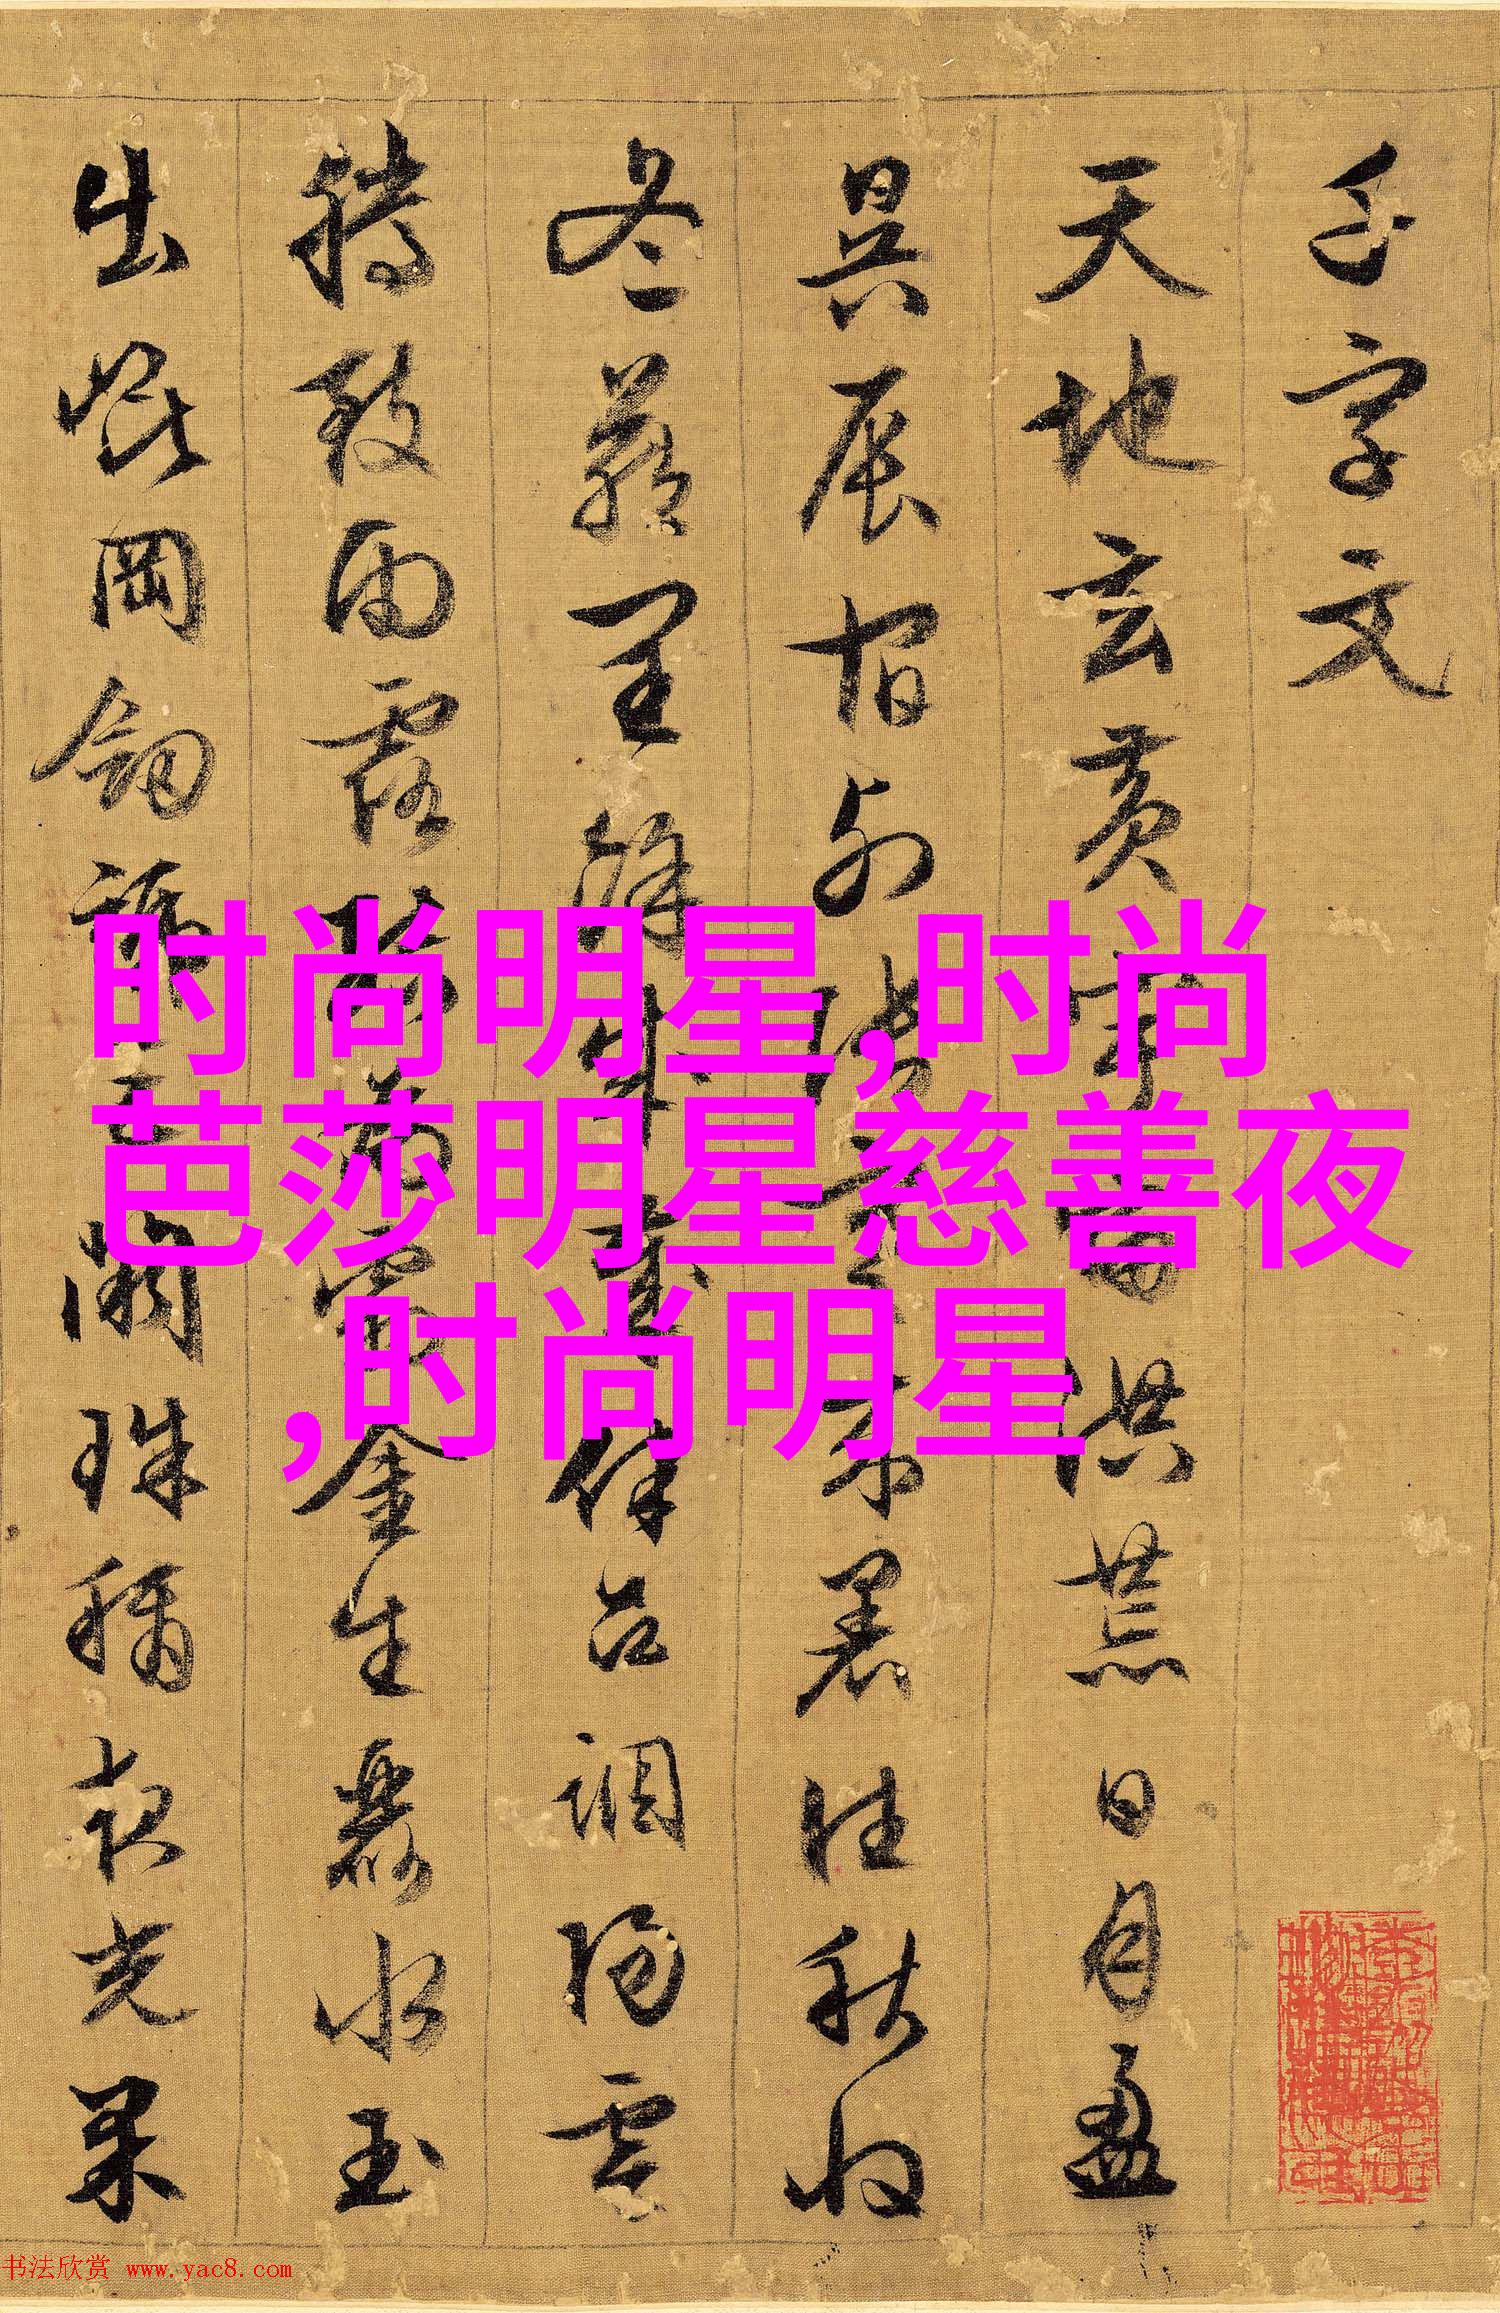 千字文
天地玄黄宇宙洪荒日月盈
昃辰宿列張寒来暑往秋收
冬藏閏餘成歲律吕調陽雲
騰致雨露結為霜金生麗水玉
出崑岡劍號巨闕珠稱夜光果
时尚明星,时尚
芭莎明星慈善夜
,时尚明星
书法欣赏 www.yac8.com